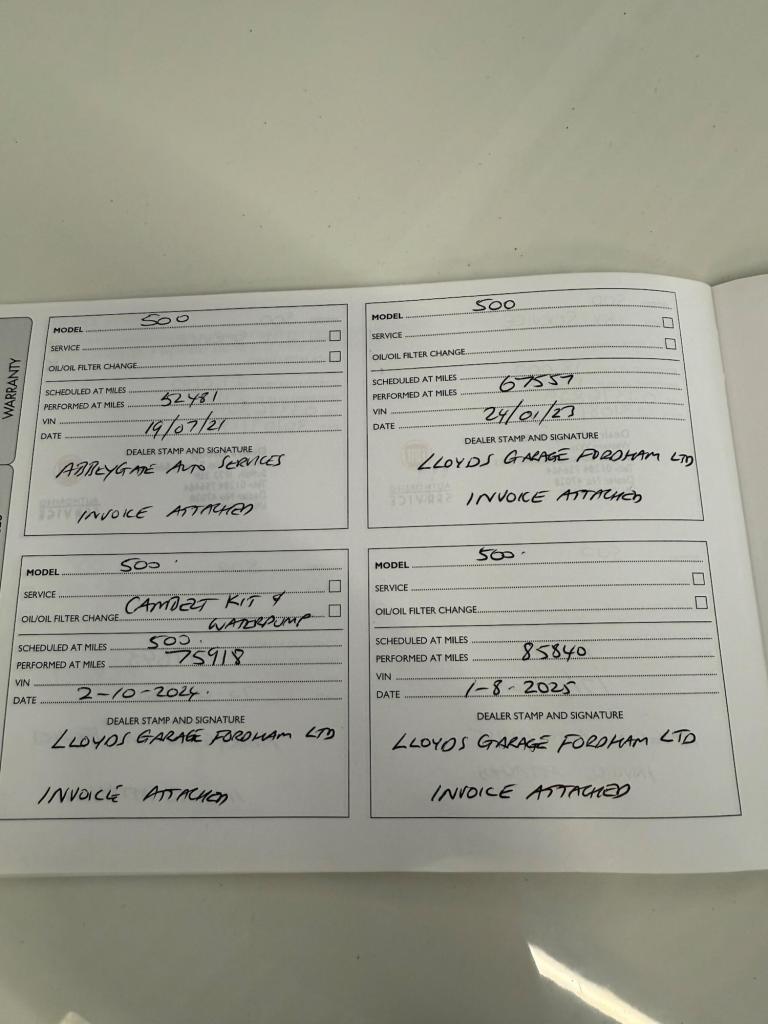 WARRANTY
MODEL 500
SERVICE
OIL/OIL FILTER CHANGE
SCHEDULED AT MILES
PERFORMED AT MILES 52481
VIN
DATE 19/07/21
DEALER STAMP AND SIGNATURE
ABBEYGATE AUTO SERVICES
INVOICE ATTACHED
MODEL 500
SERVICE
OIL/OIL FILTER CHANGE
SCHEDULED AT MILES
PERFORMED AT MILES 67557
VIN
DATE 24/01/23
DEALER STAMP AND SIGNATURE
LLOYDS GARAGE FORDHAM LTD
INVOICE ATTACHED
MODEL 500
SERVICE
OIL/OIL FILTER CHANGE CAMBELT KIT &
WATERPUMP
SCHEDULED AT MILES 500
PERFORMED AT MILES 75918
VIN
DATE 2-10-2024.
DEALER STAMP AND SIGNATURE
LLOYDS GARAGE FORDHAM LTD
INVOICE ATTACHED
MODEL 500
SERVICE
OIL/OIL FILTER CHANGE
SCHEDULED AT MILES
PERFORMED AT MILES 85840
VIN
DATE 1-8-2025
DEALER STAMP AND SIGNATURE
LLOYDS GARAGE FORDHAM LTD
INVOICE ATTACHED